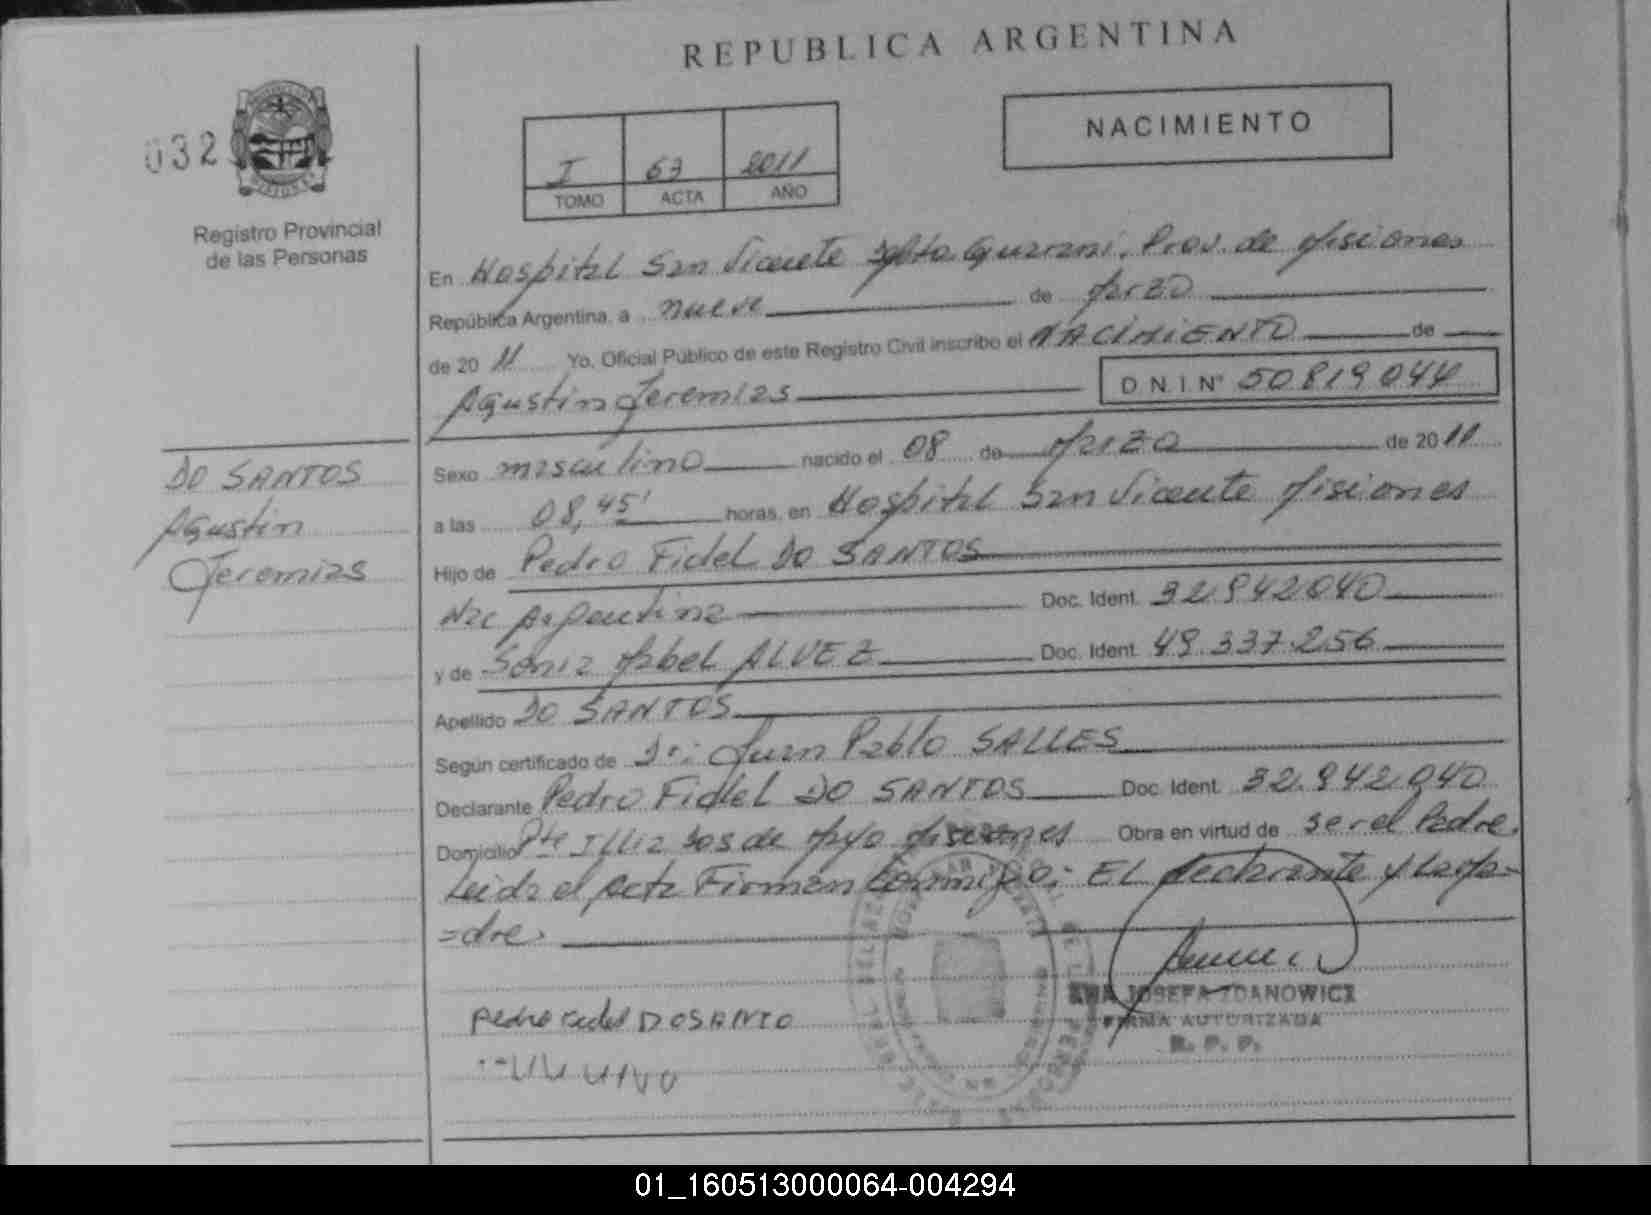 REPUBLICA ARGENTINA
NACIMIENTO
032
I 63 2011
TOMO ACTA AÑO
Registro Provincial
de las Personas
En Hospital San Vicente Dpto. Guarani. Prov. de Misiones
República Argentina, a nueve de Marzo
de 2011 Yo, Oficial Público de este Registro Civil inscribo el NACIMIENTO de
Agustin Jeremias D.N.I. N° 50819044
DO SANTOS
Agustin
Jeremias
Sexo masculino nacido el 08 de Marzo de 2011
a las 08,45' horas, en Hospital San Vicente Misiones
Hijo de Pedro Fidel DO SANTOS
Nac Argentina Doc. Ident. 32.942.040
y de Sonia Mabel ALVEZ Doc. Ident. 49.337.256
Apellido DO SANTOS
Según certificado de Dr: Juan Pablo SALLES
Declarante Pedro Fidel DO SANTOS Doc. Ident. 32.942.040
Domicilio Pte Illia 25 de Mayo Misiones Obra en virtud de ser el Padre.
Leida el Acta Firman Conmigo: EL declarante y la Ma-
=dre.
Pedro Fidel DOSANTO
JOSEFA ZDANOWICZ
FIRMA AUTORIZADA
R. P. P.
01_160513000064-004294